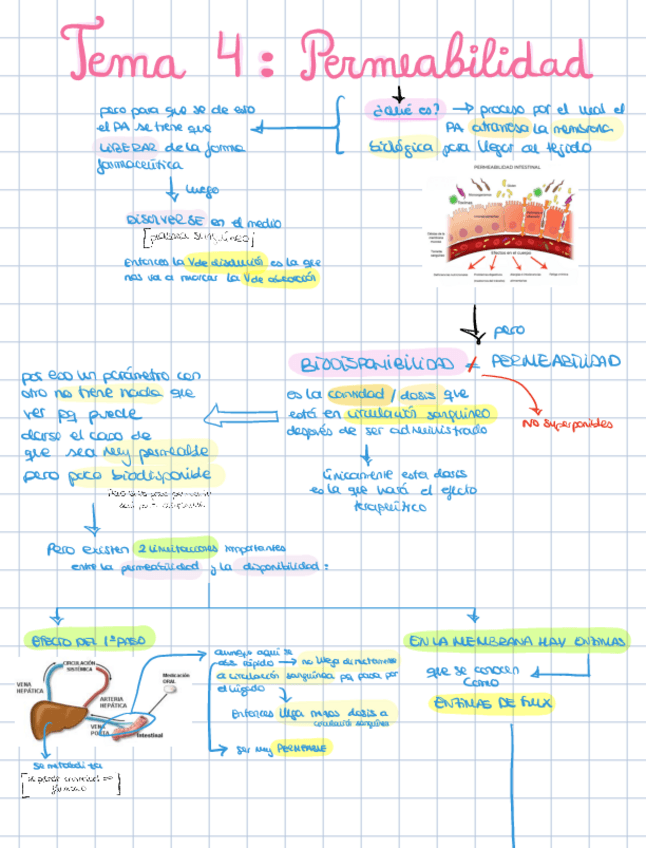 Tema 4: Permeabilidad
¿Qué es? → proceso por el cual el
PA atraviesa la membrana
biológica para llegar al tejido
pero para que se de esto
el PA se tiene que
LIBERAR de la forma
farmacéutica
luego
DISOLVERSE en el medio
[plasma sanguíneo]
entonces la V de disolución es la que
nos va a marcar la V de absorción
PERMEABILIDAD INTESTINAL
Efectos en el cuerpo
pero
BIODISPONIBILIDAD ≠ PERMEABILIDAD
NO superponibles
es la cantidad / dosis que
está en circulación sanguínea
después de ser administrado
únicamente esta dosis
es la que hará el efecto
terapéutico
por eso un parámetro con
otro no tiene nada que
ver pq puede
darse el caso de
que sea muy permeable
pero poco biodisponible
Pero existen 2 limitaciones importantes
entre la permeabilidad y la disponibilidad:
EFECTO DEL 1º PASO
CIRCULACIÓN
SISTÉMICA
VENA
HEPÁTICA
ARTERIA
HEPÁTICA
VENA
PORTA
Medicación
ORAL
Intestinal
se metaboliza
aunque aquí se
abs rápido → no llega
a circulación sanguínea pq pasa por
el hígado
Entonces llega menos dosis a
circulación sanguínea
ser muy PERMEABLE
EN LA MEMBRANA HAY ENZIMAS
que se conocen
como
ENZIMAS DE FLUX